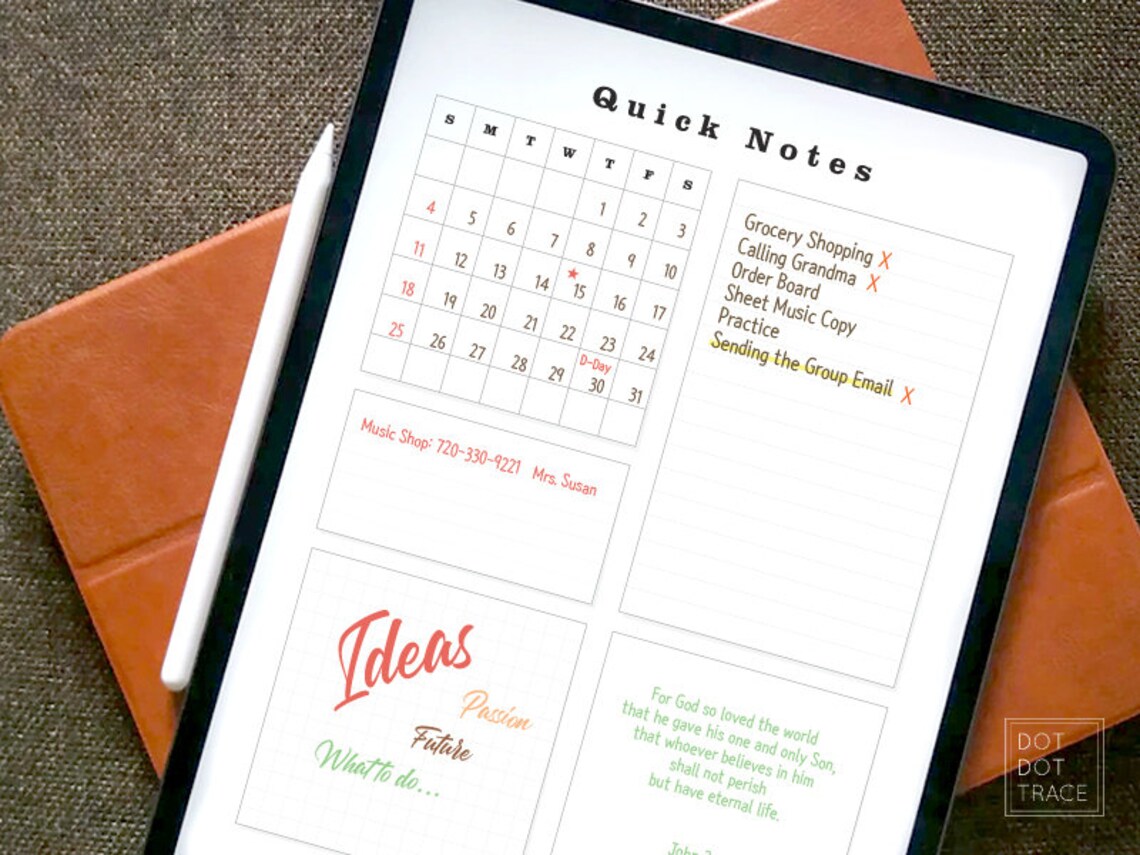 Quick Notes
S M T W T F S
1 2 3
4 5 6 7 8 9 10
11 12 13 14 ★ 15 16 17
18 19 20 21 22 23 24
25 26 27 28 29 D-Day 30 31
Grocery Shopping X
Calling Grandma X
Order Board
Sheet Music Copy
Practice
Sending the Group Email X
Music Shop: 720-330-9221 Mrs. Susan
Ideas
Passion
Future
What to do...
For God so loved the world
that he gave his one and only Son,
that whoever believes in him
shall not perish
but have eternal life.
John
DOT
DOT
TRACE